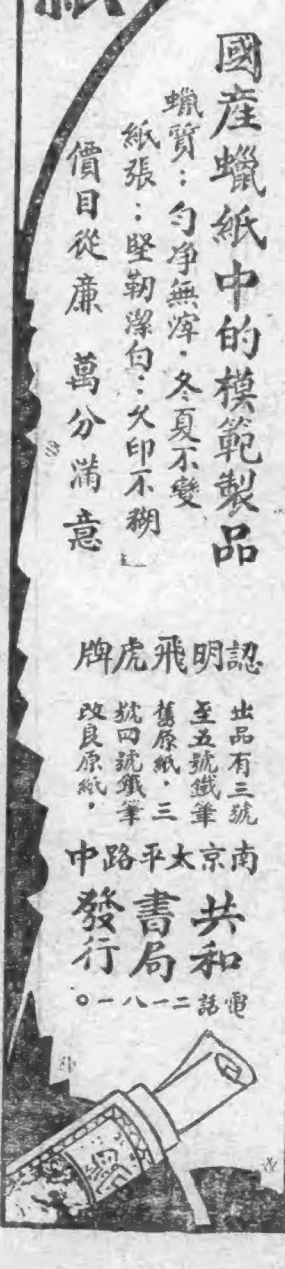 紙
國產蠟紙中的模範製品
蠟質：勻淨無滓・冬夏不變
紙張：堅韌潔白：久印不糊」
價目從廉 萬分滿意
認明飛虎牌
出品有三號
至五號鐵筆
舊原紙．三
號四號鐵筆
改良原紙，
南京太平路中
共和
書局
發行
電話二一八一〇